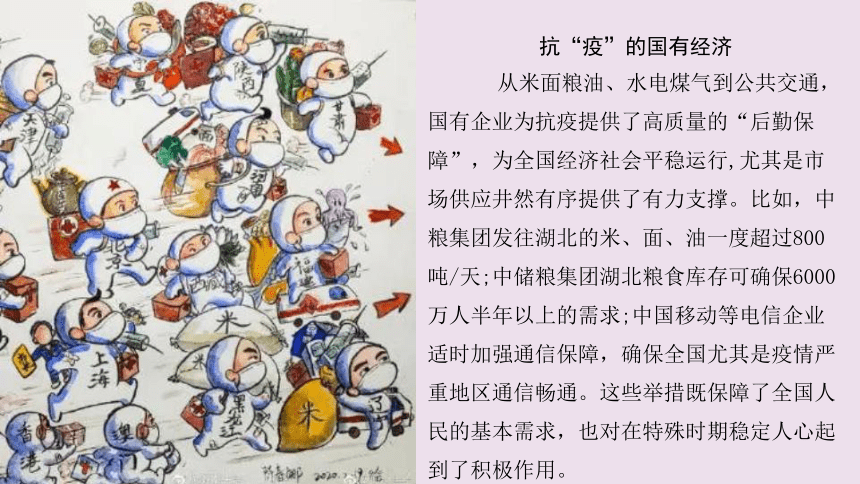 抗“疫”的国有经济
从米面粮油、水电煤气到公共交通，
国有企业为抗疫提供了高质量的“后勤保
障”，为全国经济社会平稳运行,尤其是市
场供应井然有序提供了有力支撑。比如，中
粮集团发往湖北的米、面、油一度超过800
吨/天;中储粮集团湖北粮食库存可确保6000
万人半年以上的需求;中国移动等电信企业
适时加强通信保障，确保全国尤其是疫情严
重地区通信畅通。这些举措既保障了全国人
民的基本需求，也对在特殊时期稳定人心起
到了积极作用。
宁夏
陕西
甘肃
天津
北京
福建
上海
米
米
黑龙江
米
辽宁
香港
澳门
2020.